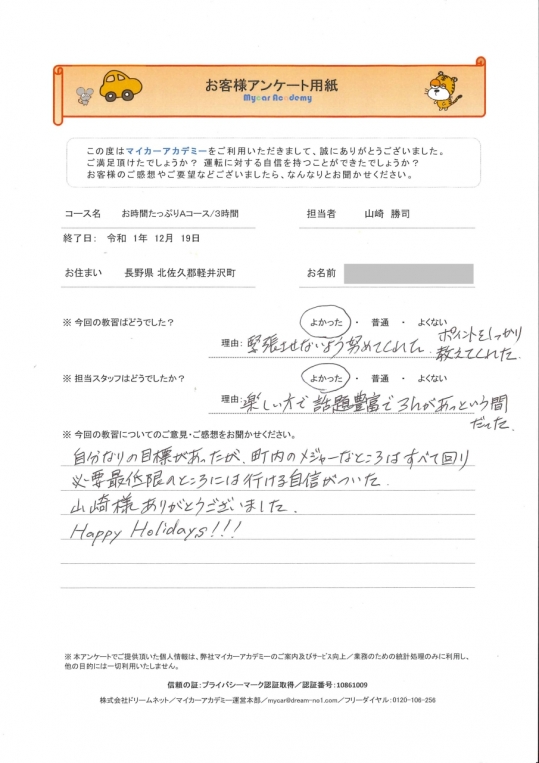 お客様アンケート用紙
Mycar Academy
この度はマイカーアカデミーをご利用いただきまして、誠にありがとうございました。
ご満足頂けたでしょうか? 運転に対する自信を持つことができたでしょうか?
お客様のご感想やご要望などございましたら、なんなりとお聞かせください。
コース名 お時間たっぷりAコース/3時間 担当者 山崎 勝司
終了日: 令和 1年 12月 19日
お住まい 長野県 北佐久郡軽井沢町 お名前
※ 今回の教習はどうでした? よかった ・ 普通 ・ よくない
理由: 緊張させないよう努めてくれた。ポイントをしっかり
教えてくれた。
※ 担当スタッフはどうでしたか? よかった ・ 普通 ・ よくない
理由: 楽しい方で話題豊富で3hがあっという間
だった。
※ 今回の教習についてのご意見・ご感想をお聞かせください。
自分なりの目標があったが、町内のメジャーなところはすべて回り
必要最低限のところには行ける自信がついた。
山崎様ありがとうございました。
Happy Holidays!!!
※ 本アンケートでご提供頂いた個人情報は、弊社マイカーアカデミーのご案内及びサービス向上/業務のための統計処理のみに利用し、
他の目的には一切利用いたしません。
信頼の証:プライバシーマーク認証取得/認証番号:10861009
株式会社ドリームネット/マイカーアカデミー運営本部/mycar@dream-no1.com/フリーダイヤル:0120-106-256